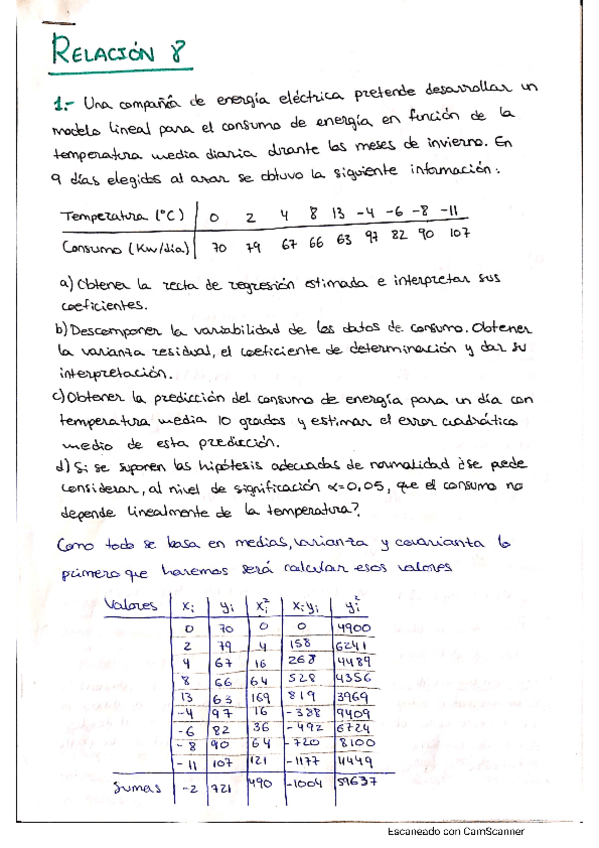 RELACIÓN 8
1.- Una compañía de energía eléctrica pretende desarrollar un
modelo lineal para el consumo de energía en función de la
temperatura media diaria durante los meses de invierno. En
9 días elegidos al azar se obtuvo la siguiente información:
Temperatura (°C) 0 2 4 8 13 -4 -6 -8 -11
Consumo (Kw/día) 70 79 67 66 63 97 82 90 107
a) Obtener la recta de regresión estimada e interpretar sus
coeficientes.
b) Descomponer la variabilidad de los datos de consumo. Obtener
la varianza residual, el coeficiente de determinación y dar su
interpretación.
c) Obtener la predicción del consumo de energía para un día con
temperatura media 10 grados y estimar el error cuadrático
medio de esta predicción.
d) Si se suponen las hipótesis adecuadas de normalidad ¿se puede
considerar, al nivel de significación α=0,05, que el consumo no
depende linealmente de la temperatura?
Como todo se basa en medias, varianza y covarianza lo
primero que haremos será calcular esos valores
Valores xi yi xi² xiyi yi²
0 70 0 0 4900
2 79 4 158 6241
4 67 16 268 4489
8 66 64 528 4356
13 63 169 819 3969
-4 97 16 -388 9409
-6 82 36 -492 6724
-8 90 64 -720 8100
-11 107 121 -1177 11449
Sumas -2 721 490 -1004 59637
Escaneado con CamScanner